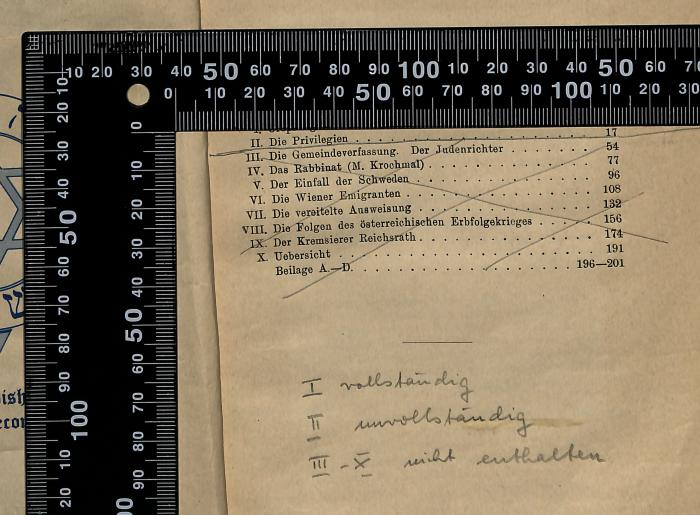 10 20 30 40 50 60 70 80 90 100 10 20 30 40 50 60 7
0 10 20 30 40 50 60 70 80 90 100 10 20 30
17
II. Die Privilegien
III. Die Gemeindeverfassung. Der Judenrichter . . . . . . . 54
IV. Das Rabbinat (M. Krochmal) . . . . . . . 77
V. Der Einfall der Schweden . . . . . . . 96
VI. Die Wiener Emigranten . . . . . . . 108
VII. Die vereitelte Ausweisung . . . . . . . 132
VIII. Die Folgen des österreichischen Erbfolgekrieges . . . . . . . 156
IX. Der Kremsierer Reichsrath . . . . . . . 174
X. Uebersicht . . . . . . . 191
Beilage A.—D. . . . . . . . 196—201
I vollständig
II unvollständig
III - X nicht enthalten
10 20 30 40 50 60 70 80 90 100 10 20
0 10 20 30 40 50 60 70 80 90